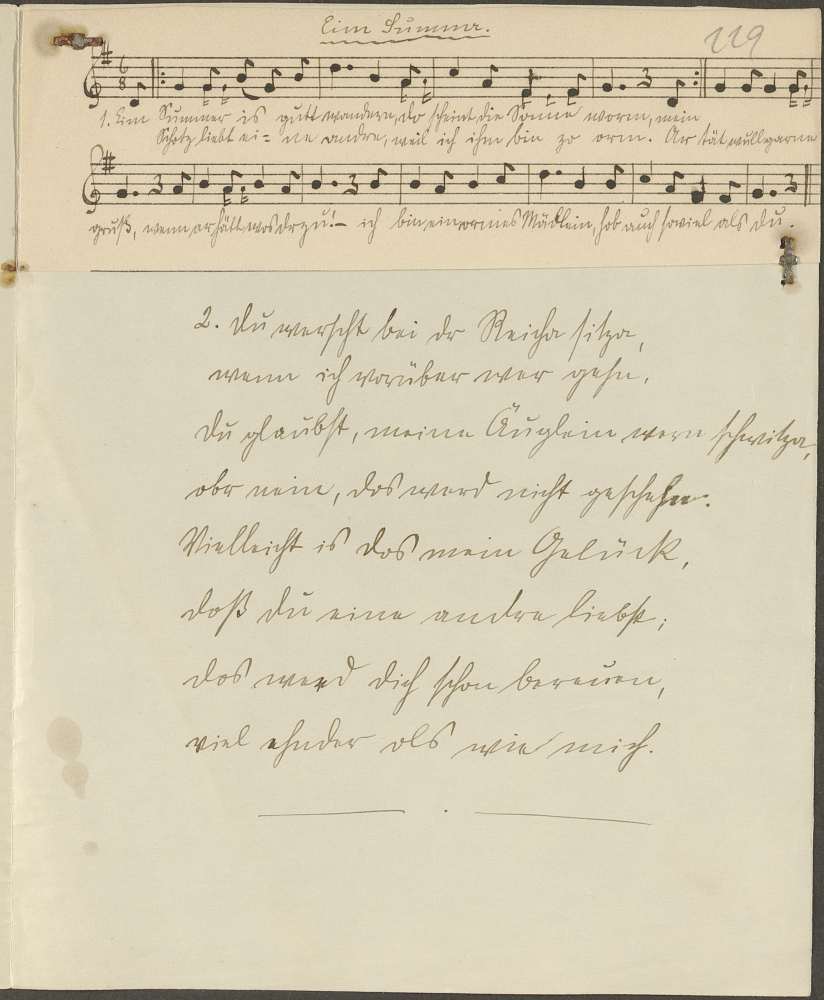 Eim Summer.
119
1. Eim Summer is gutt wandern, do scheint die Sonne worm, mein
Schotz liebt ei= ne andre, weil ich ihm bin zo orm. Ar tät wull garne
gruß, wenn ar hätt wos drzu! – ich bin ein ormes Mädlein, hob auch soviel als du.
2. Du werscht bei dr Reicha sitza,
wenn ich vorüber war gehn.
Du glaubst, meine Äuglein wern schwitza,
obr nein, dos werd nicht geschehn.
Vielleicht is dos mein Gelück,
doß du eine andre liebst;
dos werd dich schon bereuen,
viel ehnder ols wie mich.